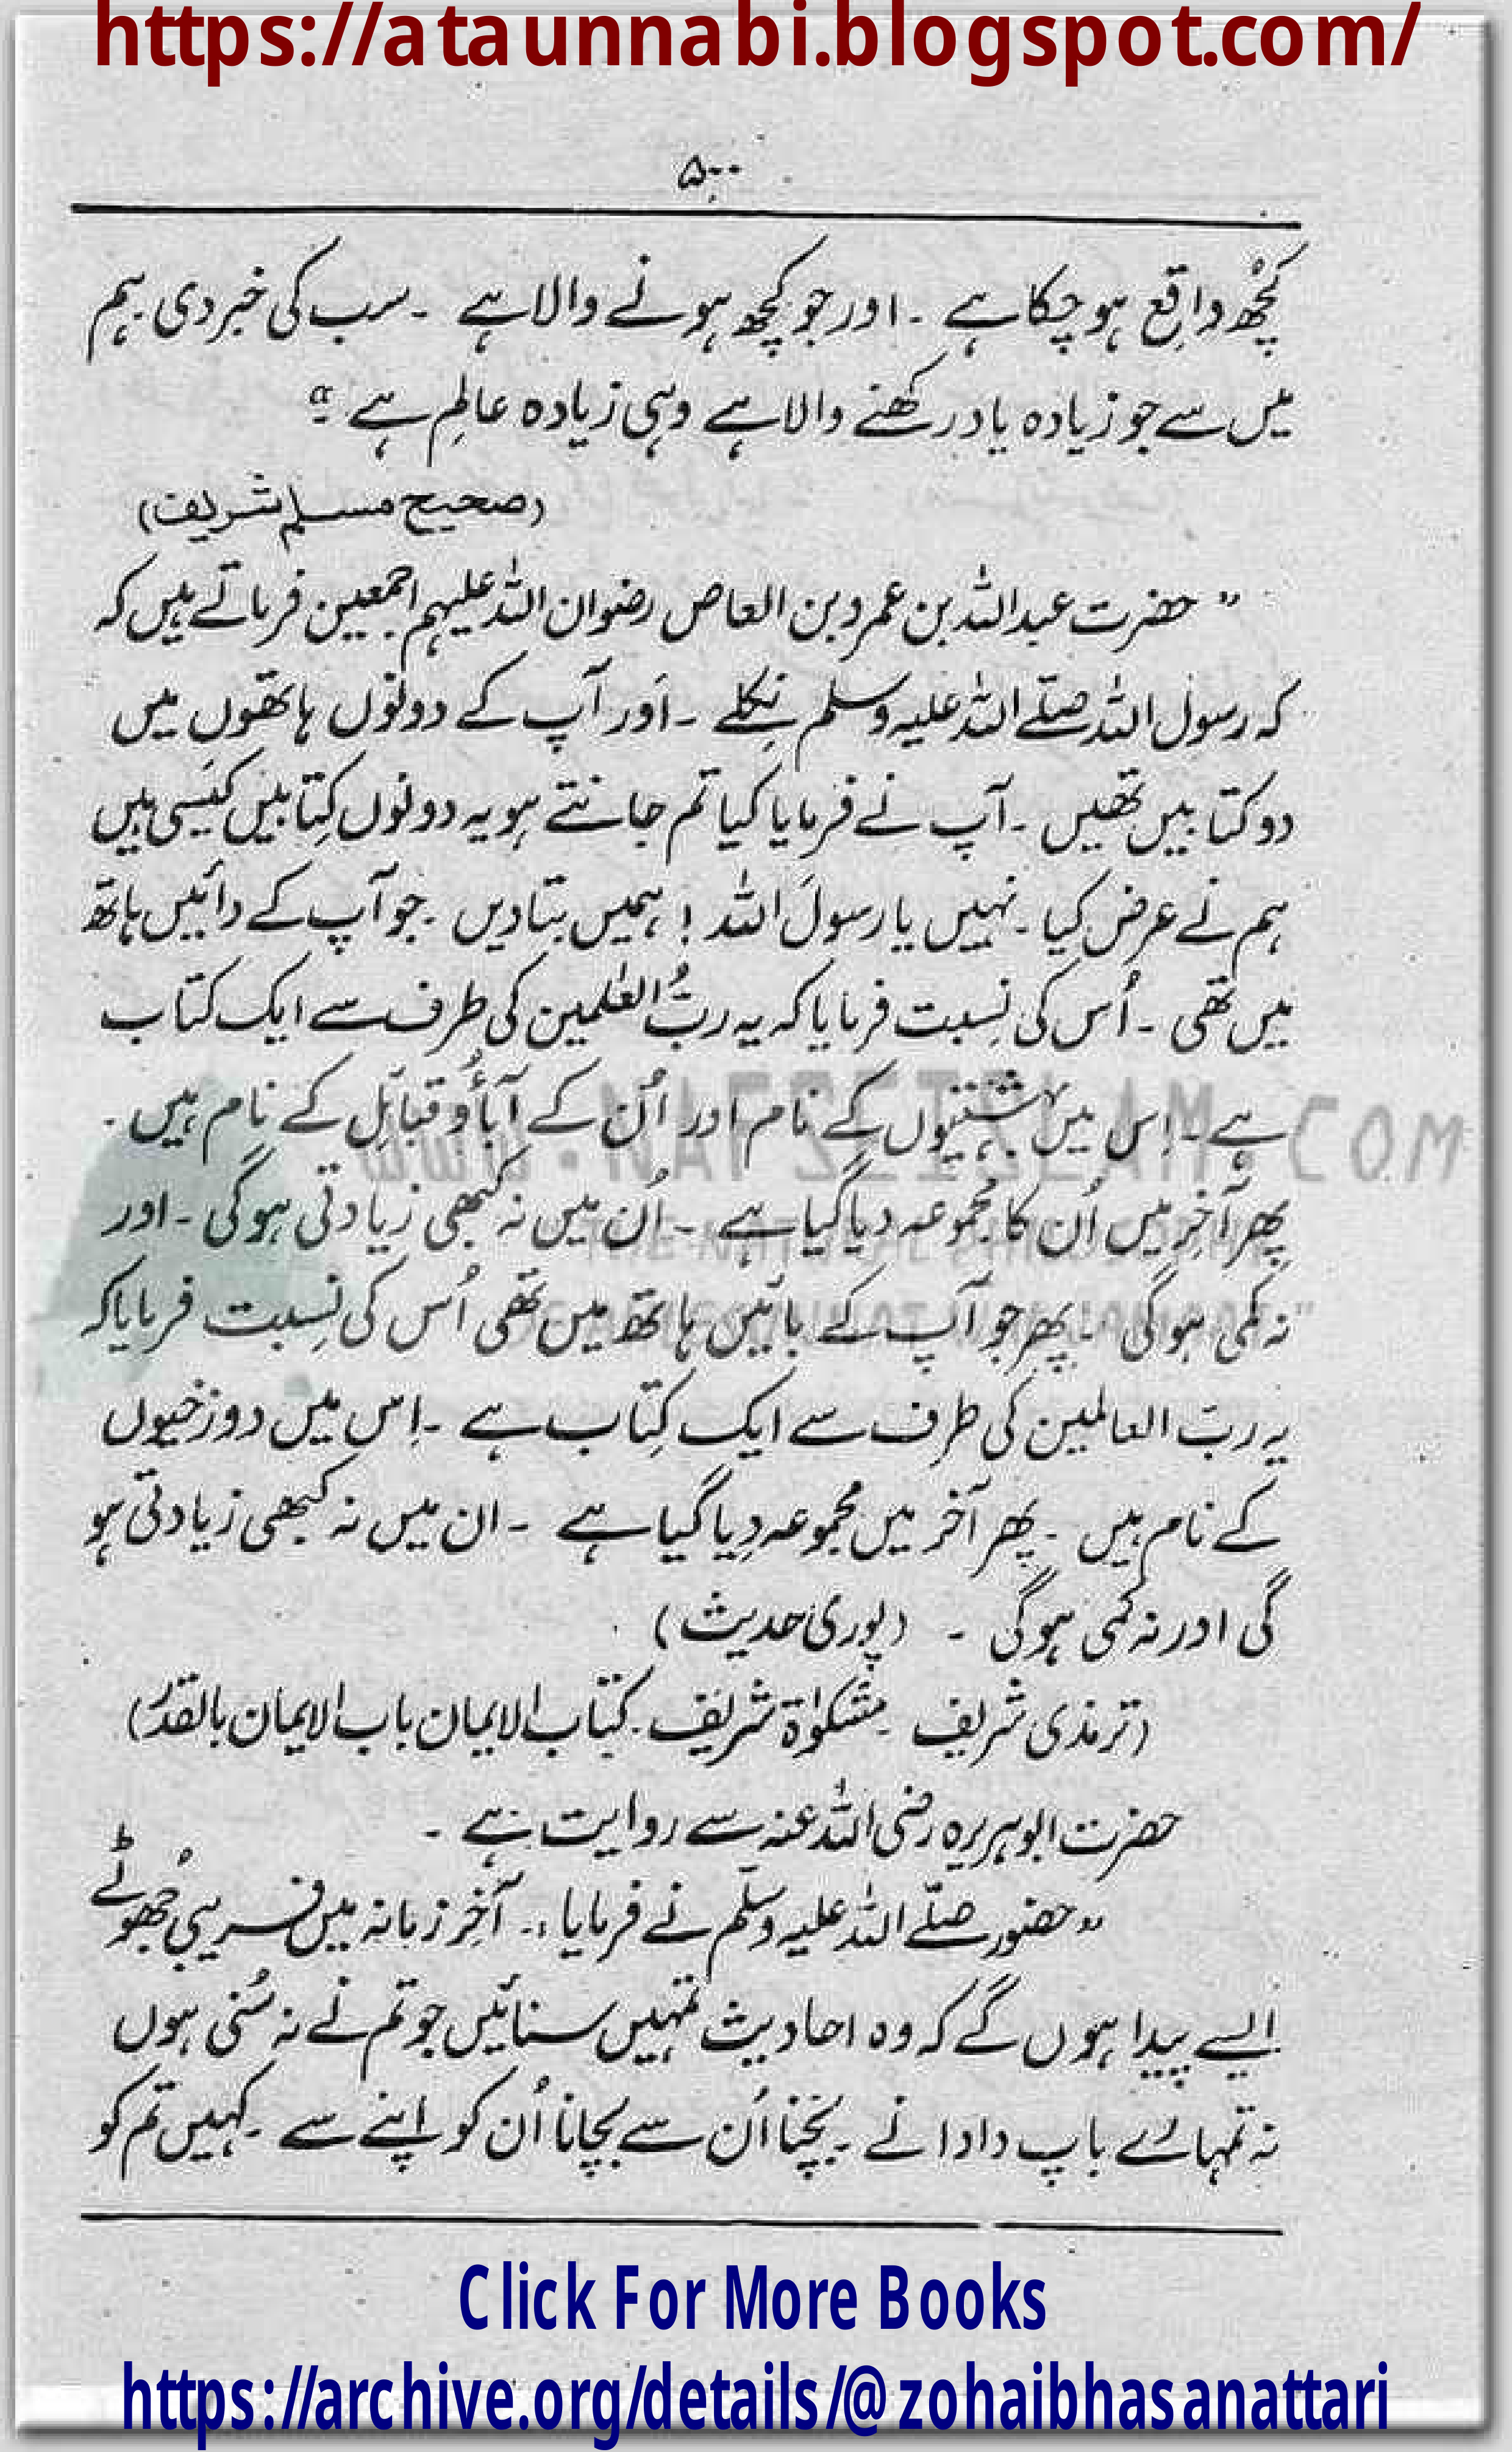 https://ataunnabi.blogspot.com/
۵۰۰
کُچھ واقِع ہو چکا ہے ۔ اور جو کُچھ ہونے والا ہے ۔ سب کی خبر دی ہم
میں سے جو زیادہ یاد رکھنے والا ہے وہی زیادہ عالِم ہے ۔"
(صحیح مسلم شریف)
" حضرت عبداللہ بن عمرو بن العاص رضوان اللہ علیہم اجمعین فرماتے ہیں کہ
کہ رسول اللہ صلّے اللہ علیہ وسلم نِکلے ۔ اَور آپ کے دونوں ہاتھوں میں
دو کتابیں تھیں ۔ آپ نے فرمایا کیا تم جانتے ہو یہ دونوں کِتابیں کیَسی ہیں
ہم نے عرض کیا ۔ نہیں یا رسولَ اللہ ! ہمیں بتا دیں ۔ جو آپ کے دائیں ہاتھ
میں تھی ۔ اُس کی نِسبت فرمایا کہ یہ ربُّ العٰلمین کی طرف سے ایک کتاب
ہے ۔ اِس میں بہشتیوں کے نام اور اُن کے آباؤ قبائل کے نام ہیں ۔
پِھر آخِر میں اُن کا مجُموعہ دیا گیا ہے ۔ اُن میں نہ کبھی زیادتی ہو گی ۔ اور
نہ کمی ہو گی ۔ پِھر جو آپ کے بائیں ہاتھ میں تھی اُس کی نِسبت فرمایا کہ
یہ ربّ العالمین کی طرف سے ایک کِتاب ہے ۔ اِس میں دوزخیوں
کے نام ہیں ۔ پھر آخر میں مجموعہ دِیا گیا ہے ۔ ان میں نہ کبھی زیادتی ہو
گی اور نہ کمی ہو گی ۔ (پوری حدیث)
(ترمذی شریف ۔ مشکوٰۃ شریف ۔ کتاب الایمان باب الایمان بالقدر)
حضرت ابوہریرہ رضی اللہ عنہ سے روایت ہے ۔
"حضور صلّے اللہ علیہ وسلّم نے فرمایا :۔ آخِر زمانہ میں فریبی جُھوٹے
ایسے پیدا ہوں گے کہ وہ احادیث تمہیں سنائیں جو تم نے نہ سُنی ہوں
نہ تمہارے باپ دادا نے ۔ بچنا اُن سے بچانا اُن کو اپنے سے ۔ کہیں تم کو
Click For More Books
https://archive.org/details/@zohaibhasanattari